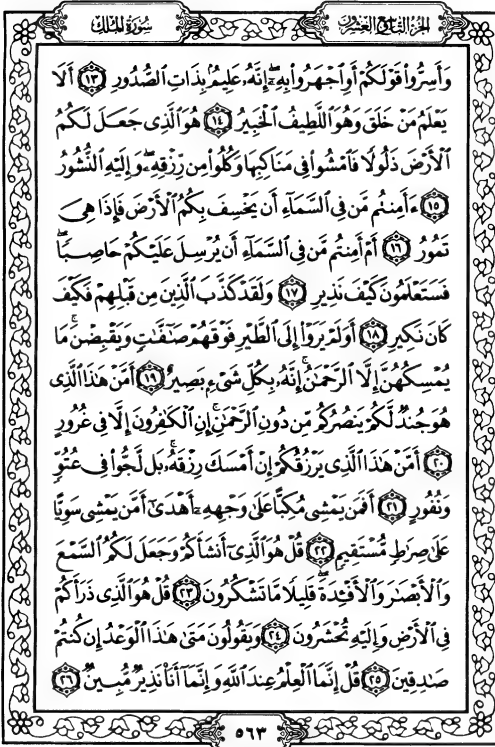 الجزء التاسع والعشرون
سورة الملك
وَأَسِرُّوا۟ قَوْلَكُمْ أَوِ ٱجْهَرُوا۟ بِهِۦٓ إِنَّهُۥ عَلِيمٌۢ بِذَاتِ ٱلصُّدُورِ ١٣ أَلَا
يَعْلَمُ مَنْ خَلَقَ وَهُوَ ٱللَّطِيفُ ٱلْخَبِيرُ ١٤ هُوَ ٱلَّذِى جَعَلَ لَكُمُ
ٱلْأَرْضَ ذَلُولًا فَٱمْشُوا۟ فِى مَنَاكِبِهَا وَكُلُوا۟ مِن رِّزْقِهِۦ وَإِلَيْهِ ٱلنُّشُورُ
١٥ ءَأَمِنتُم مَّن فِى ٱلسَّمَآءِ أَن يَخْسِفَ بِكُمُ ٱلْأَرْضَ فَإِذَا هِىَ
تَمُورُ ١٦ أَمْ أَمِنتُم مَّن فِى ٱلسَّمَآءِ أَن يُرْسِلَ عَلَيْكُمْ حَاصِبًا ۖ
فَسَتَعْلَمُونَ كَيْفَ نَذِيرِ ١٧ وَلَقَدْ كَذَّبَ ٱلَّذِينَ مِن قَبْلِهِمْ فَكَيْفَ
كَانَ نَكِيرِ ١٨ أَوَلَمْ يَرَوْا۟ إِلَى ٱلطَّيْرِ فَوْقَهُمْ صَـٰٓفَّـٰتٍ وَيَقْبِضْنَ ۚ مَا
يُمْسِكُهُنَّ إِلَّا ٱلرَّحْمَـٰنُ ۚ إِنَّهُۥ بِكُلِّ شَىْءٍۭ بَصِيرٌ ١٩ أَمَّنْ هَـٰذَا ٱلَّذِى
هُوَ جُندٌ لَّكُمْ يَنصُرُكُم مِّن دُونِ ٱلرَّحْمَـٰنِ ۚ إِنِ ٱلْكَـٰفِرُونَ إِلَّا فِى غُرُورٍ
٢٠ أَمَّنْ هَـٰذَا ٱلَّذِى يَرْزُقُكُمْ إِنْ أَمْسَكَ رِزْقَهُۥ ۚ بَل لَّجُّوا۟ فِى عُتُوٍّ
وَنُفُورٍ ٢١ أَفَمَن يَمْشِى مُكِبًّا عَلَىٰ وَجْهِهِۦٓ أَهْدَىٰٓ أَمَّن يَمْشِى سَوِيًّا
عَلَىٰ صِرَٰطٍ مُّسْتَقِيمٍ ٢٢ قُلْ هُوَ ٱلَّذِىٓ أَنشَأَكُمْ وَجَعَلَ لَكُمُ ٱلسَّمْعَ
وَٱلْأَبْصَـٰرَ وَٱلْأَفْـِٔدَةَ ۖ قَلِيلًا مَّا تَشْكُرُونَ ٢٣ قُلْ هُوَ ٱلَّذِى ذَرَأَكُمْ
فِى ٱلْأَرْضِ وَإِلَيْهِ تُحْشَرُونَ ٢٤ وَيَقُولُونَ مَتَىٰ هَـٰذَا ٱلْوَعْدُ إِن كُنتُمْ
صَـٰدِقِينَ ٢٥ قُلْ إِنَّمَا ٱلْعِلْمُ عِندَ ٱللَّهِ وَإِنَّمَآ أَنَا۠ نَذِيرٌ مُّبِينٌ ٢٦
٥٦٣